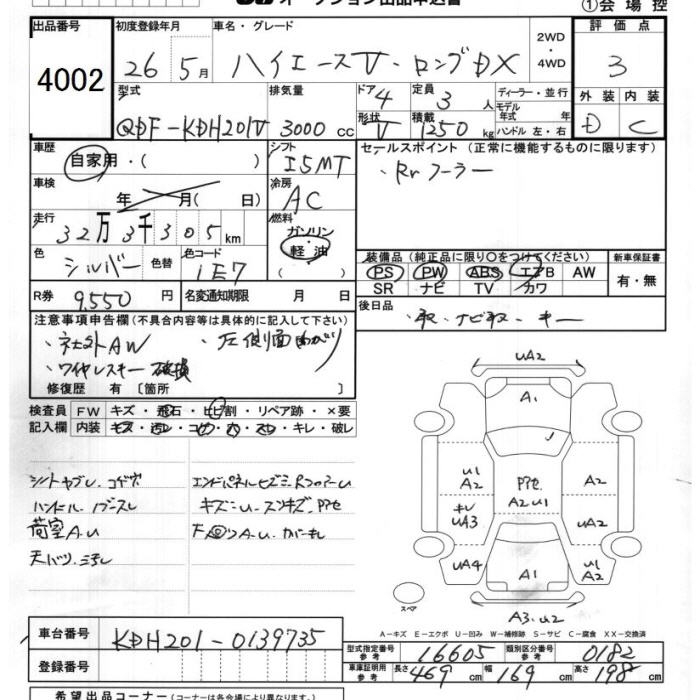 オークション出品申込書
①会場控
出品番号 4002
初度登録年月 26 5月
車名・グレード ハイエースV-ロングDX
2WD・4WD
評価点 3
型式 QDF-KDH201V
排気量 3000cc
ドア 4 形状 V
定員 3人 積載 1250kg
ディーラー・並行
モデル年式 年式
ハンドル 左・右
外装 D 内装 C
車歴 自家用・( )
シフト I5MT
セールスポイント (正常に機能するものに限ります)
・Rrクーラー
車検 年 月( 日)
冷房 AC
走行 32万3千305km
燃料 ガソリン・軽油( )
色 シルバー 色替 色コード 1E7
装備品 (純正品に限り○をつけてください)
PS PW ABS エアB AW
SR ナビ TV カワ
新車保証書 有・無
R券 9,550円 名変通知期限 月 日
後日品
・取、ナビ取、キー
注意事項申告欄(不具合内容等は具体的に記入して下さい)
・社外AW ・左側面曲がり
・ワイヤレスキー破損
修復歴 有 [箇所 ]
検査員記入欄
FW キズ・飛石・ヒビ割・リペア跡・×要
内装 キズ・汚レ・コゲ・穴・スレ・キレ・破レ
シートヤブレ、コゲ穴
ハンドル、ノブスレ
荷室A.U
天バリ、汚れ
UA2
A1
U1 A2
A2
キレ UA3
A2U1
UA2
UA4
A1
U1 A2
A3.U2
スペア
A-キズ E-エクボ U-凹み W-補修跡 S-サビ C-腐食 XX-交換済
車台番号 KDH201-0139735
型式指定番号 参考 16605 類別区分番号 参考 0182
登録番号
車庫証明用 参考 長さ 469cm 幅 169cm 高さ 198cm
希望出品コーナー